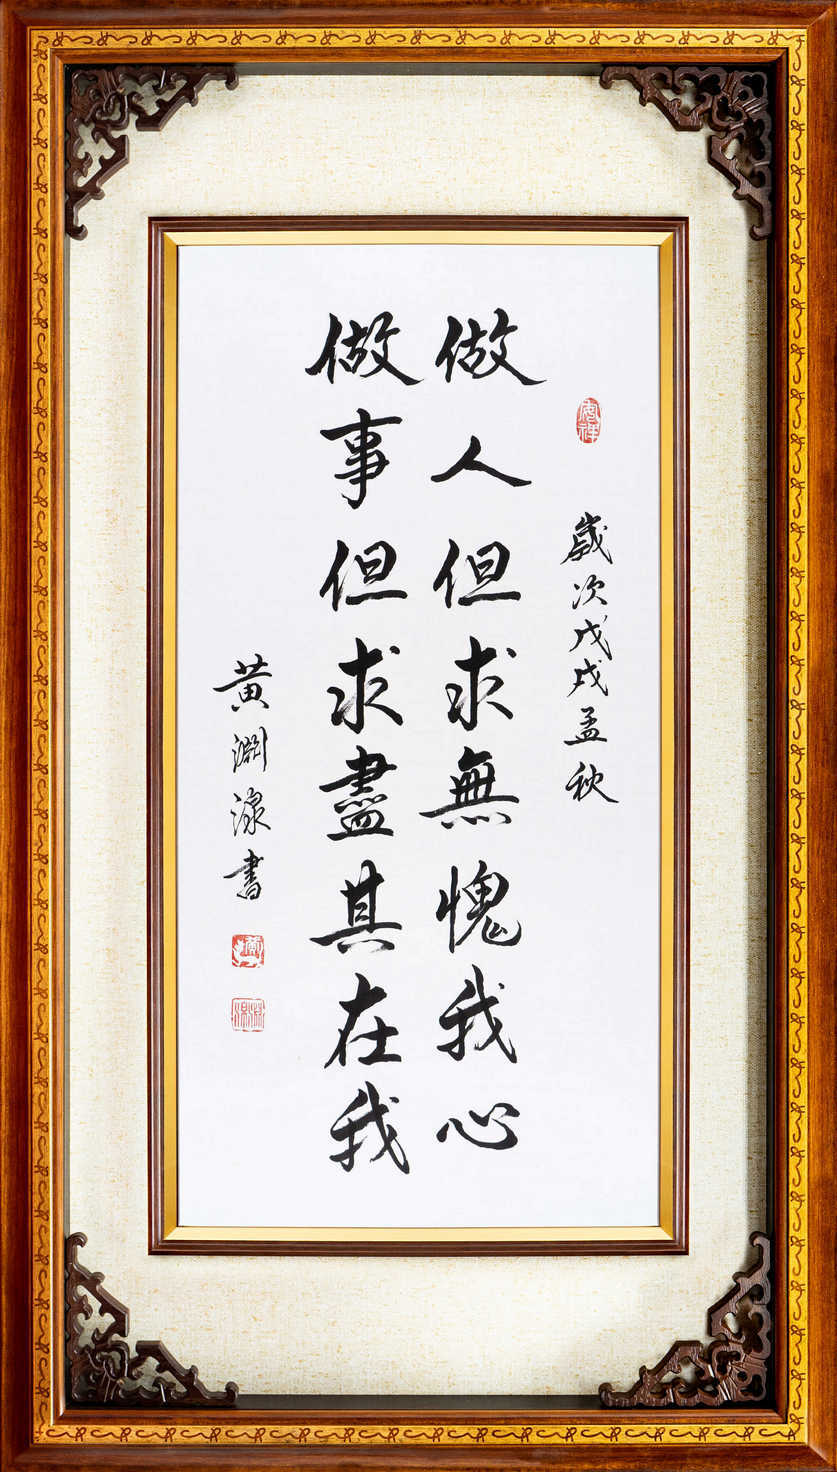 歲次戊戌孟秋
做人但求無愧我心
做事但求盡其在我
黃淵淥書